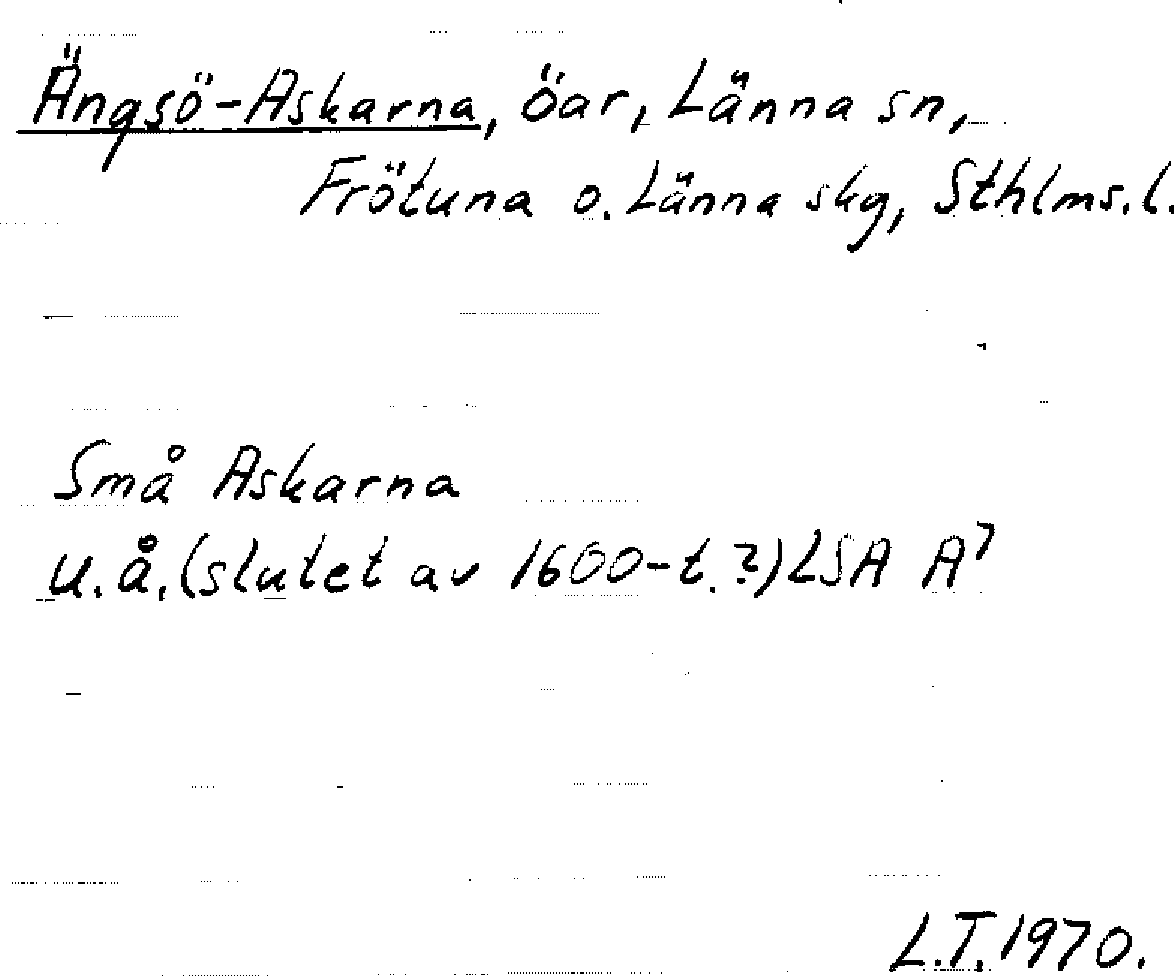 Ängsö-Askarna, öar, Länna sn,
Frötuna o. Länna skg, Sthlms.l.
Små Askarna
u.å. (slutet av 1600-t.?) LSA A⁷
L.T. 1970.